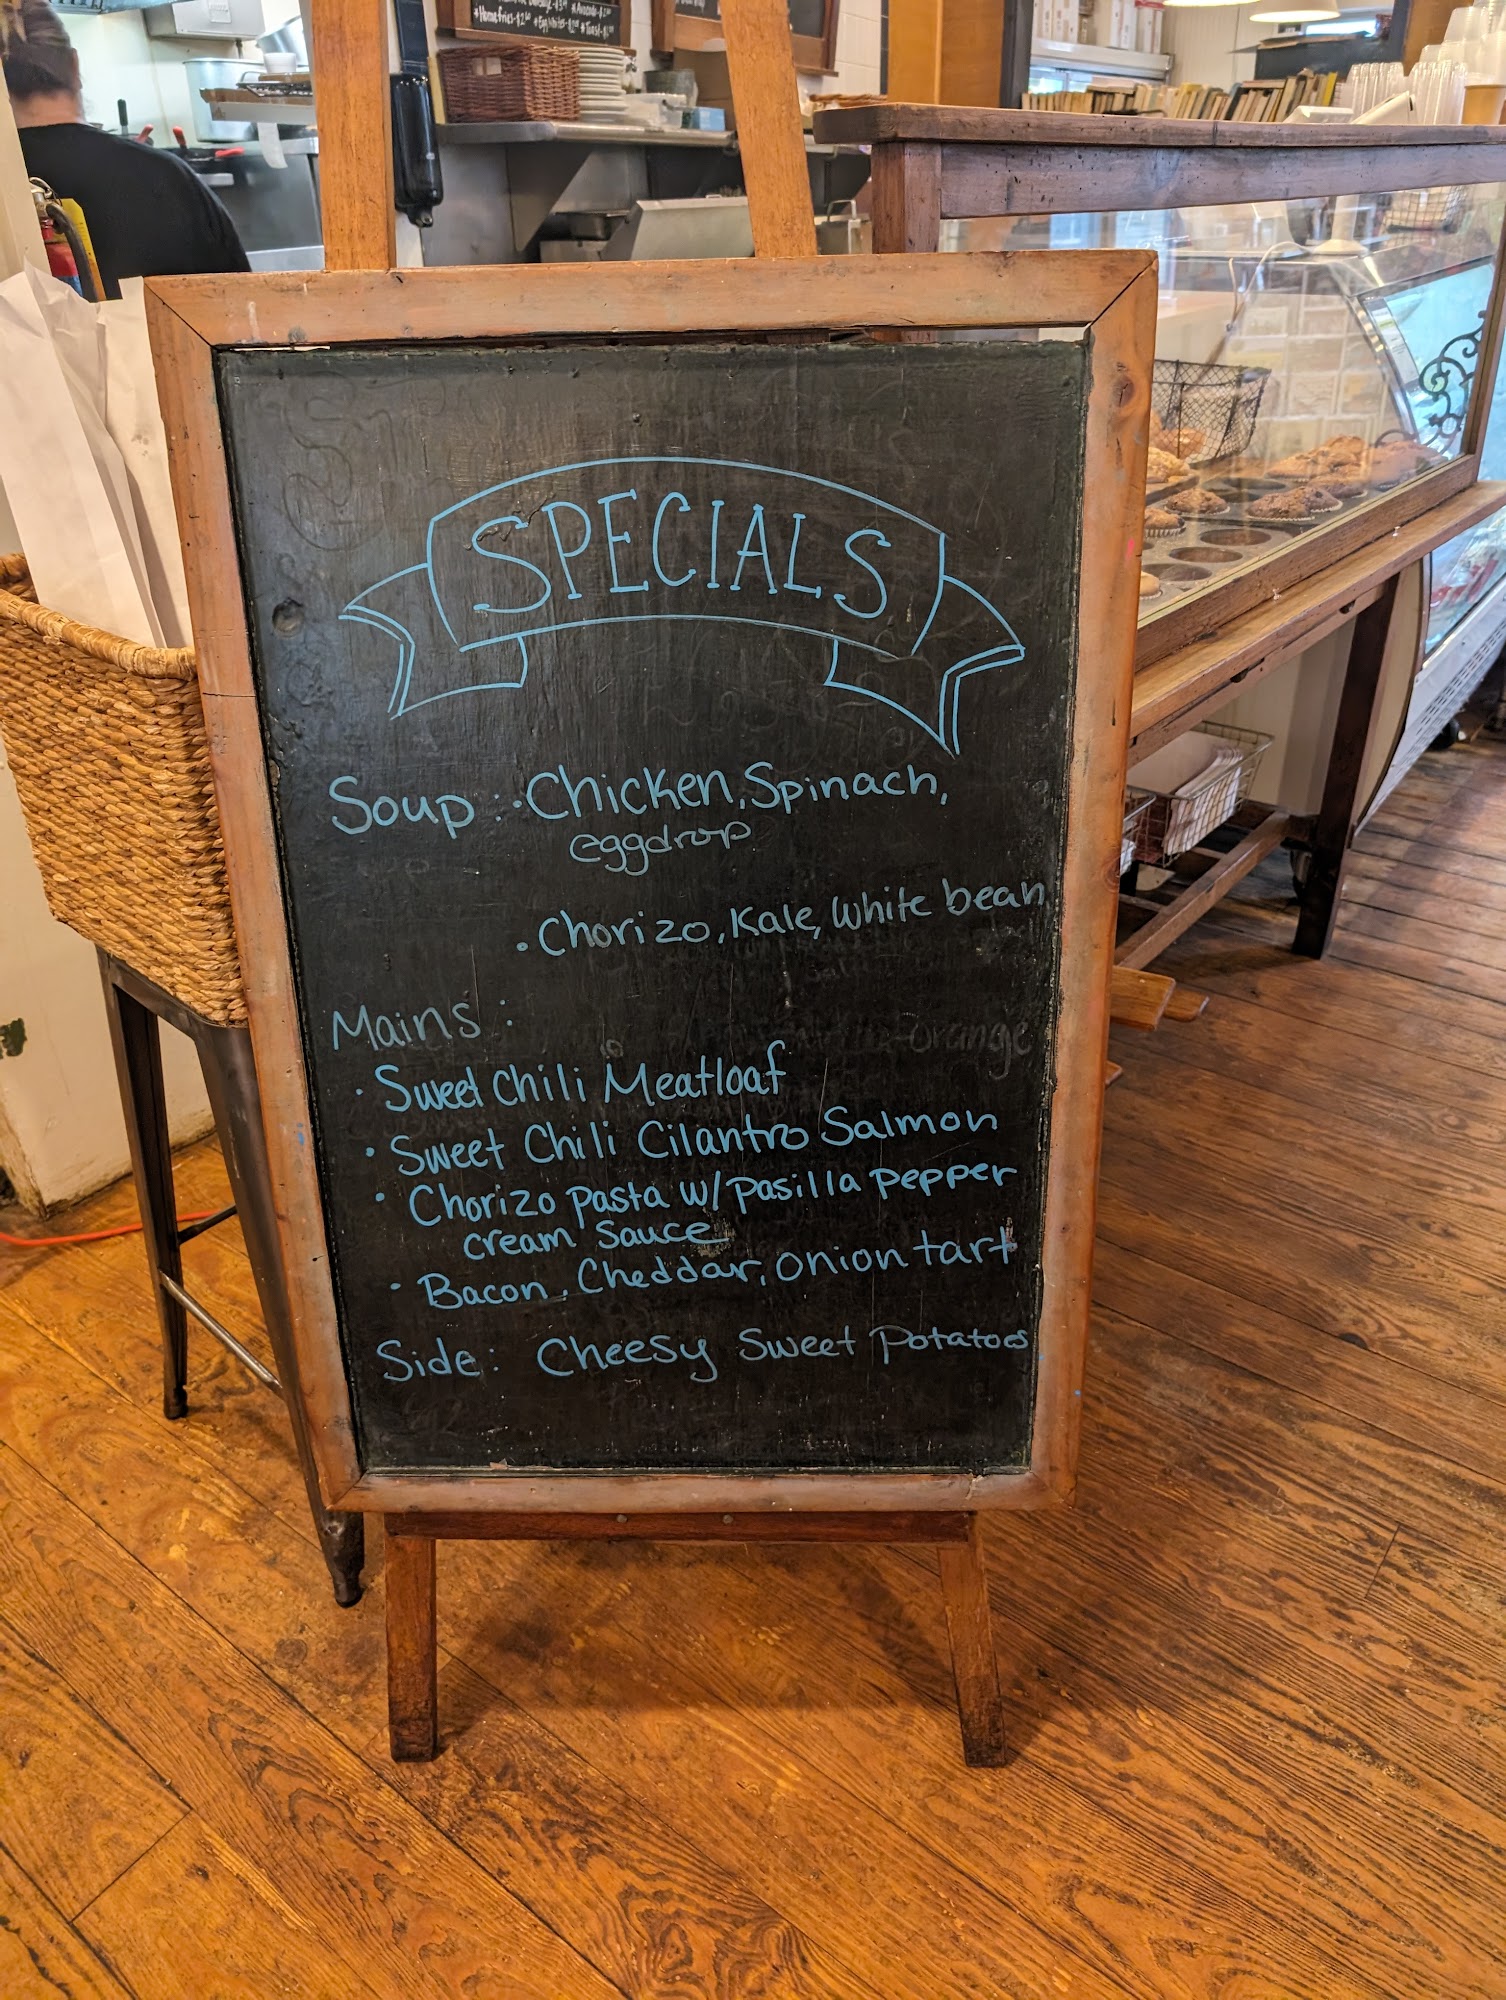 *Homefries-$2.60 *Egg Whites-
*Avocado-$2.00
*Toast-
SPECIALS
Soup: • Chicken, Spinach,
eggdrop
• Chorizo, Kale, White bean
Mains:
-orange
• Sweet Chili Meatloaf
• Sweet Chili Cilantro Salmon
• Chorizo pasta w/ pasilla pepper
cream sauce
• Bacon, Cheddar, onion tart
Side: Cheesy Sweet Potatoes